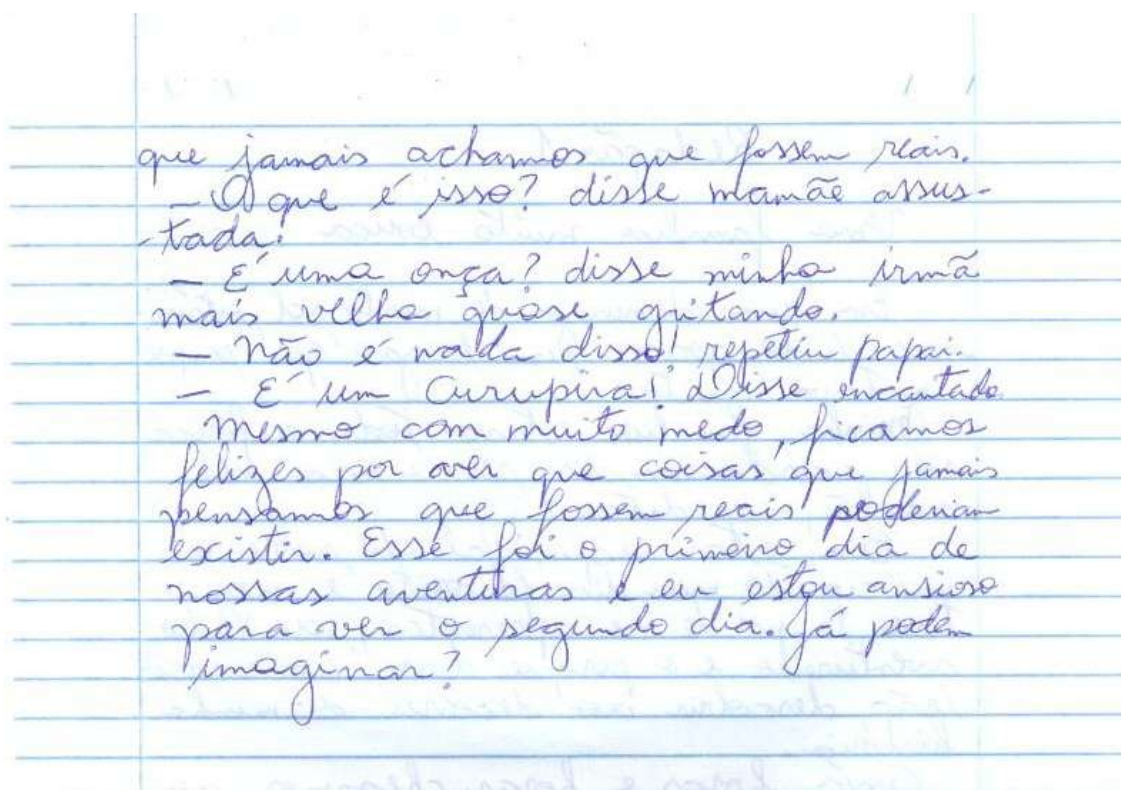 que jamais achamos que fossem reais.
– O que é isso? disse mamãe assus-
tada.
– É uma onça? disse minha irmã
mais velha quase gritando.
– Não é nada disso! repetiu papai.
– É um Curupira! Disse encantado
Mesmo com muito medo, ficamos
felizes por aver que coisas que jamais
pensamos que fossem reais poderiam
existir. Esse foi o primeiro dia de
nossas aventuras e eu estou ansioso
para ver o segundo dia. Já podem
imaginar?